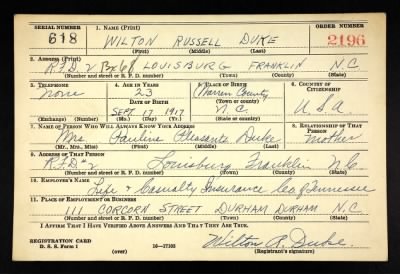 SERIAL NUMBER 1. NAME (Print) ORDER NUMBER
618 WILTON RUSSELL DUKE 2196
(First) (Middle) (Last)
2. ADDRESS (Print)
R.F.D. 2 Box 68 LOUISBURG FRANKLIN N.C.
(Number and street or R. F. D. number) (Town) (County) (State)
3. TELEPHONE 4. AGE IN YEARS 5. PLACE OF BIRTH 6. COUNTRY OF CITIZENSHIP
None 23 Warren County U S A
DATE OF BIRTH (Town or county)
SEPT. 17 1917 N.C.
(Exchange) (Number) (Mo.) (Day) (Yr.) (State or country)
7. NAME OF PERSON WHO WILL ALWAYS KNOW YOUR ADDRESS 8. RELATIONSHIP OF THAT PERSON
Mrs. Pauline Pleasants Duke Mother
(Mr., Mrs., Miss) (First) (Middle) (Last)
9. ADDRESS OF THAT PERSON
R.F.D. 2 Louisburg Franklin N.C.
(Number and street or R. F. D. number) (Town) (County) (State)
10. EMPLOYER'S NAME
Life & Casualty Insurance Co of Tennessee
11. PLACE OF EMPLOYMENT OR BUSINESS
111 CORCORN STREET DURHAM DURHAM N.C.
(Number and street or R. F. D. number) (Town) (County) (State)
I AFFIRM THAT I HAVE VERIFIED ABOVE ANSWERS AND THAT THEY ARE TRUE.
REGISTRATION CARD
D. S. S. Form 1 (over) 16—17105 Wilton R. Duke.